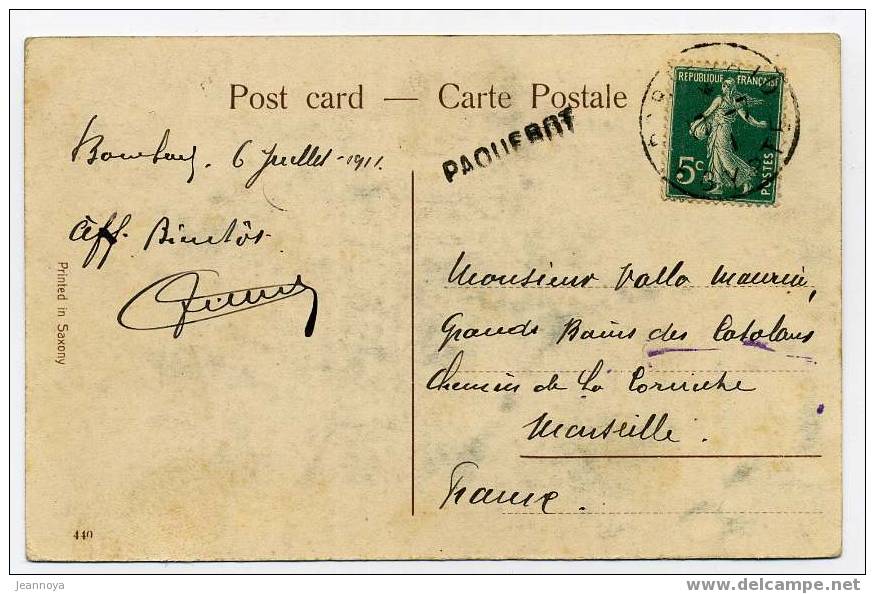 Post card — Carte Postale
PAQUEBOT
REPUBLIQUE FRANÇAISE
5c
POSTES
Bombay. 6 Juillet 1911.
Aff. Bientôt
Monsieur Valla Maurice,
Grands Bains des Catalans
Chemin de La Corniche
Marseille.
France.
Printed in Saxony
440
jeannoya
www.delcampe.net